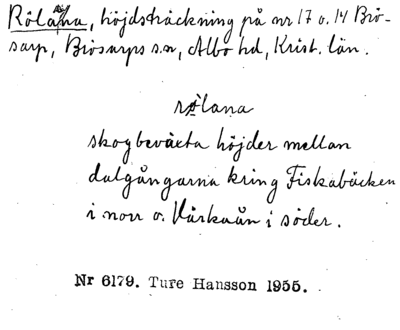 Rölana, höjdsträckning på nr 17 o. 14 Brö-
sarp, Brösarps s:n, Albo hd, Krist. län.
rølana
skogbeväxta höjder mellan
dalgångarna kring Fiskabäcken
i norr o. Värkaån i söder.
Nr 6179. Ture Hansson 1955.